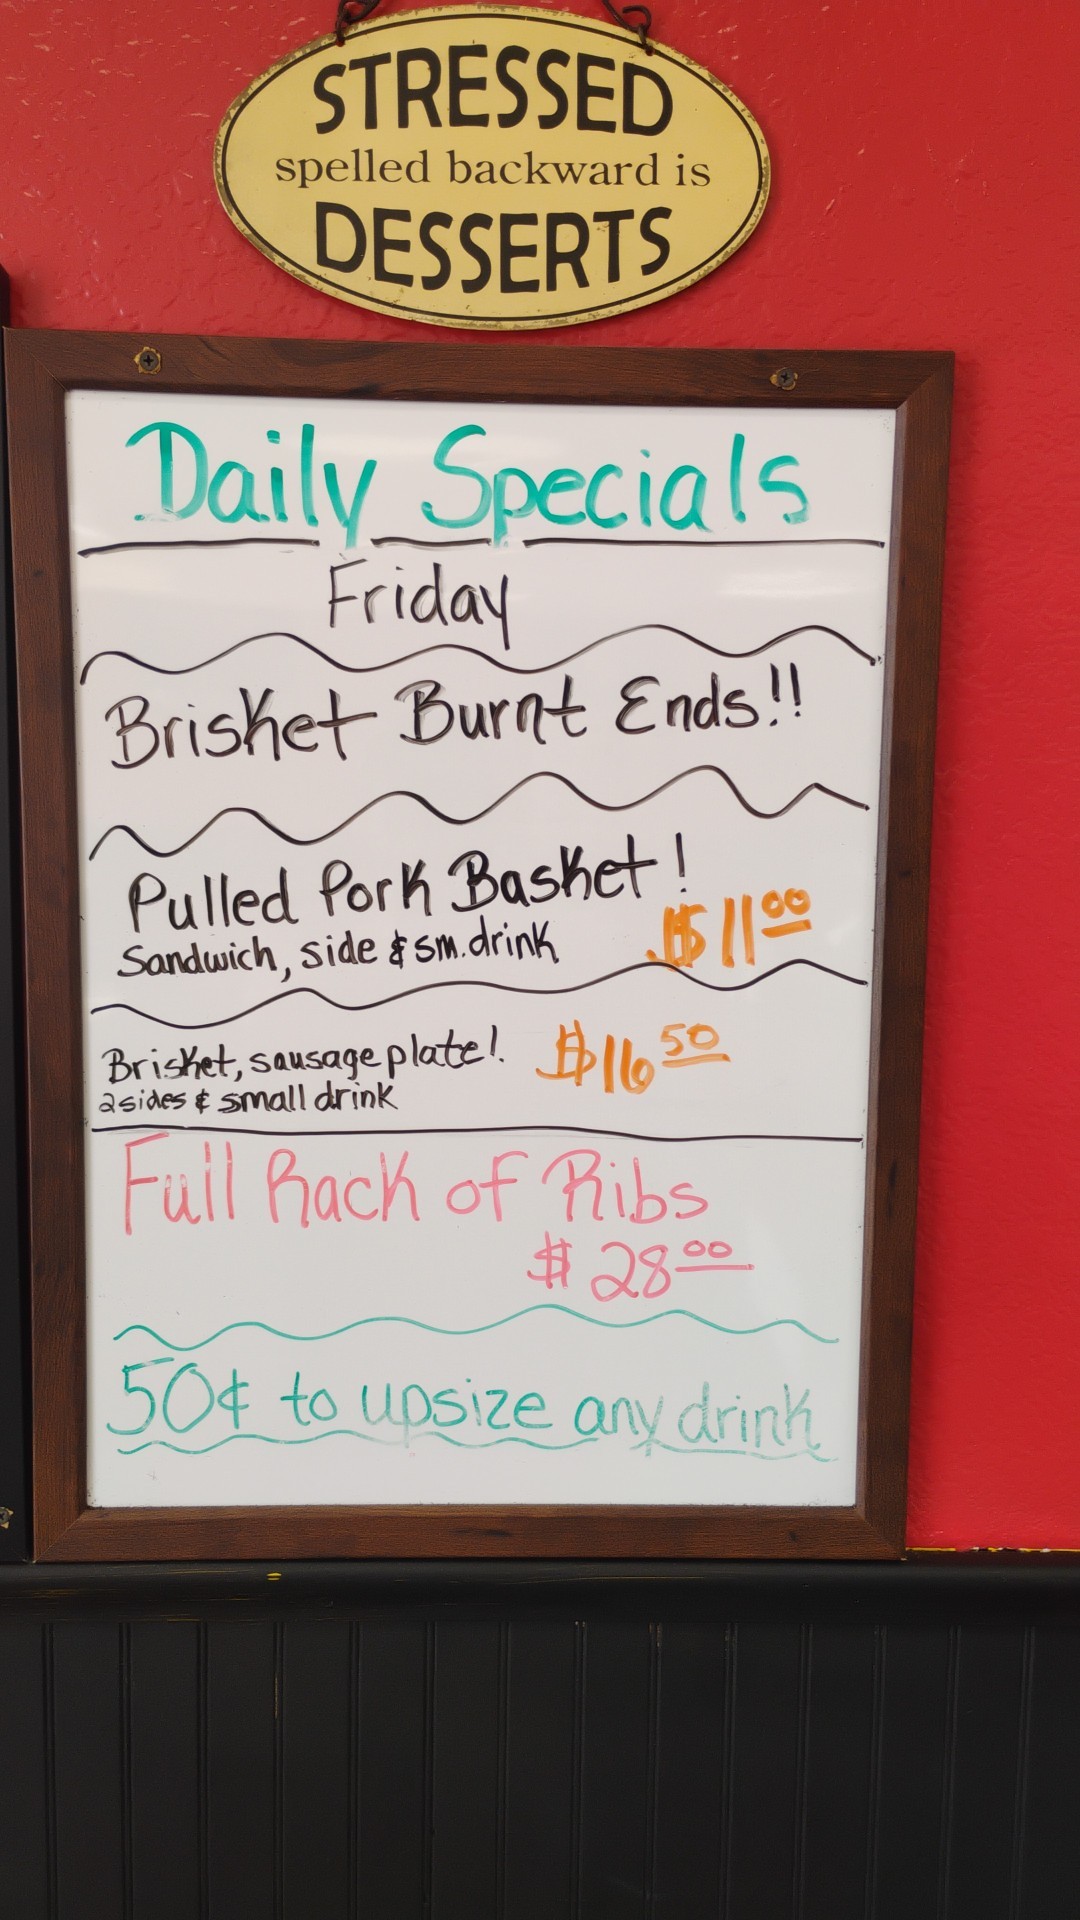 STRESSED
spelled backward is
DESSERTS
Daily Specials
Friday
Brisket Burnt Ends!!
Pulled Pork Basket!
Sandwich, side & sm. drink $11.00
Brisket, sausage plate! $16.50
2 sides & small drink
Full Rack of Ribs
$28.00
50¢ to upsize any drink